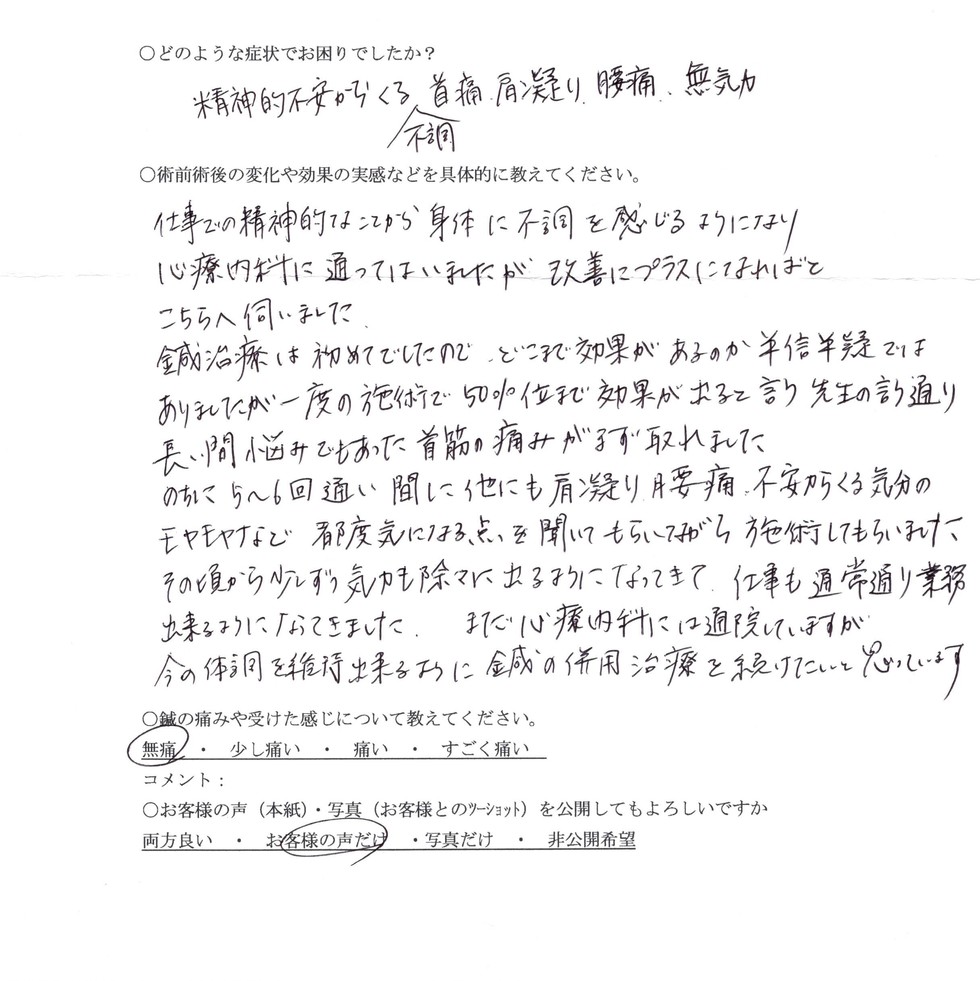 ○どのような症状でお困りでしたか？
精神的不安からくる不調 首痛、肩凝り、腰痛、無気力
○術前術後の変化や効果の実感などを具体的に教えてください。
仕事での精神的なことから身体に不調を感じるようになり
心療内科に通ってはいましたが 改善にプラスになればと
こちらへ伺いました。
鍼治療は初めてでしたので、どこまで効果があるのか半信半疑では
ありましたが一度の施術で50%位まで効果が出ると言う先生の言う通り
長い間悩みでもあった首筋の痛みがまず取れました
のちに5〜6回通い 間に他にも肩凝り、腰痛、不安からくる気分の
モヤモヤなど 都度気になる点を聞いてもらいながら施術してもらいました
その頃から少しずつ気力も徐々に出るようになってきて、仕事も通常通り業務
出来るようになってきました。 まだ心療内科には通院していますが
今の体調を維持出来るように鍼の併用治療を続けたいと思っています
○鍼の痛みや受けた感じについて教えてください。
無痛 ・ 少し痛い ・ 痛い ・ すごく痛い
コメント：
○お客様の声（本紙）・写真（お客様とのﾂｰｼｮｯﾄ）を公開してもよろしいですか
両方良い ・ お客様の声だけ ・写真だけ ・ 非公開希望